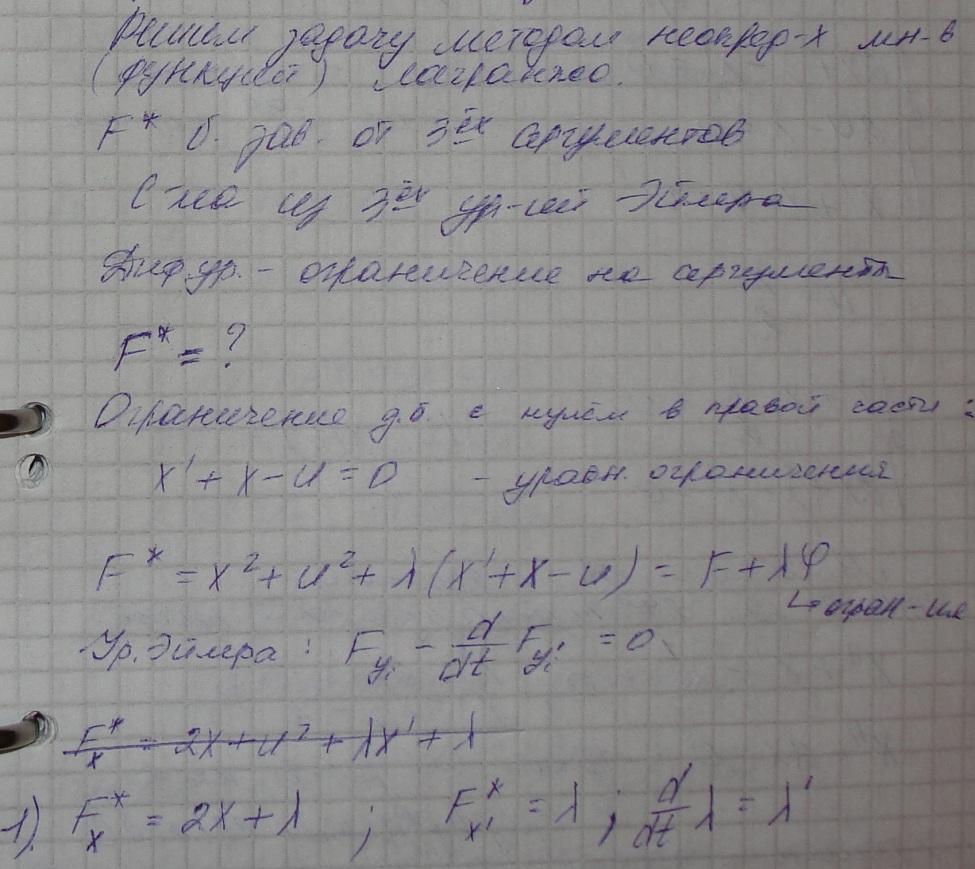 Решим задачу методом неопред-х мн-в
(функций) Лагранжа.
F* б. зав. от 3ёх аргументов
С-ма из 3ёх ур-ий Эйлера
Диф.ур. - ограничение на аргументы
F* = ?
Ограничение д.б. с нулём в правой части:
x' + x - u = 0 - уравн. ограничения
F* = x² + u² + λ(x' + x - u) = F + λφ
↳ огран-ия
Ур. Эйлера: F_{yᵢ} - d/dt F_{yᵢ'} = 0
F*ₓ = 2x + u² + λx' + λ
1). F*ₓ = 2x + λ ; F*_{x'} = λ ; d/dt λ = λ'